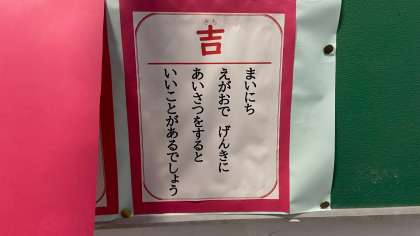 吉
まいにち
えがおで げんきに
あいさつをすると
いいことがあるでしょう